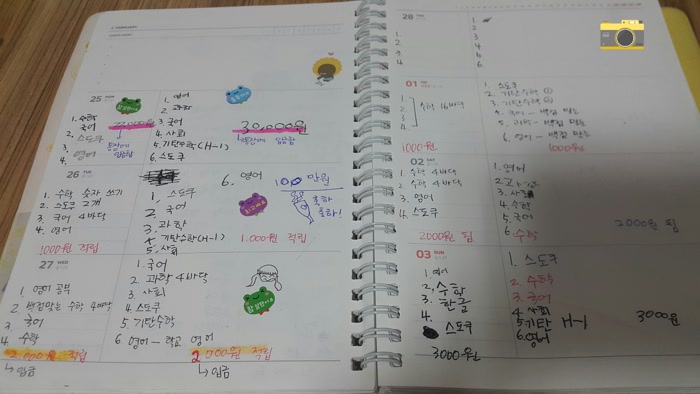 25
1. 수학
국어
2. 스도쿠
3.
4. 영어
통장에
입금함
1. 영어
2. 과학
3. 국어
4. 사회
5. 기탄수학(H-1)
6. 스도쿠
30,000원
통장에 입금함
26
1. 수학 숫자 쓰기
2. 스도쿠 2개
3. 국어 4바닥
4. 영어
1000원 적립
1. 스도쿠
2. 국어
3. 과학
4. 기탄수학(H-1)
5. 사회
6. 영어
100 만원
축하
축하!
1.000원 적립
27
1. 영어 공부
2. 백점맞는 수학 4바닥
3. 국어
4. 수학
2.000원 적립
↳입금
1. 국어
2. 과학 4바닥
3. 사회
4. 스도쿠
5. 기탄수학
6. 영어 - 학교 영어
참 잘했어요
2.000원 적립
↳입금
28
1.
2.
3.
4.
1.
2.
3.
4.
5.
6.
01
1.
2.
3.
4.
수학 16바닥
1000원
1. 스도쿠
2. 기탄수학 ①
3. 기탄수학 ②
4. 국어 - 백점 맞는
5. 과학 - 백점 맞는
6. 영어 - 백점 맞는
1000원
02
1. 수학 4바닥
2. 수학 4바닥
3. 영어
4. 스도쿠
2000원 팀
1. 영어
2. 과학
3. 사회
4. 수학
5. 국어
6. 수학
2000원 팀
03
1. 영어
2. 수학
3. 한글
4. 스도쿠
3000원
1. 스도쿠
2. 수학
3. 국어
4. 사회
5. 기탄 H-1
6. 영어
3000원